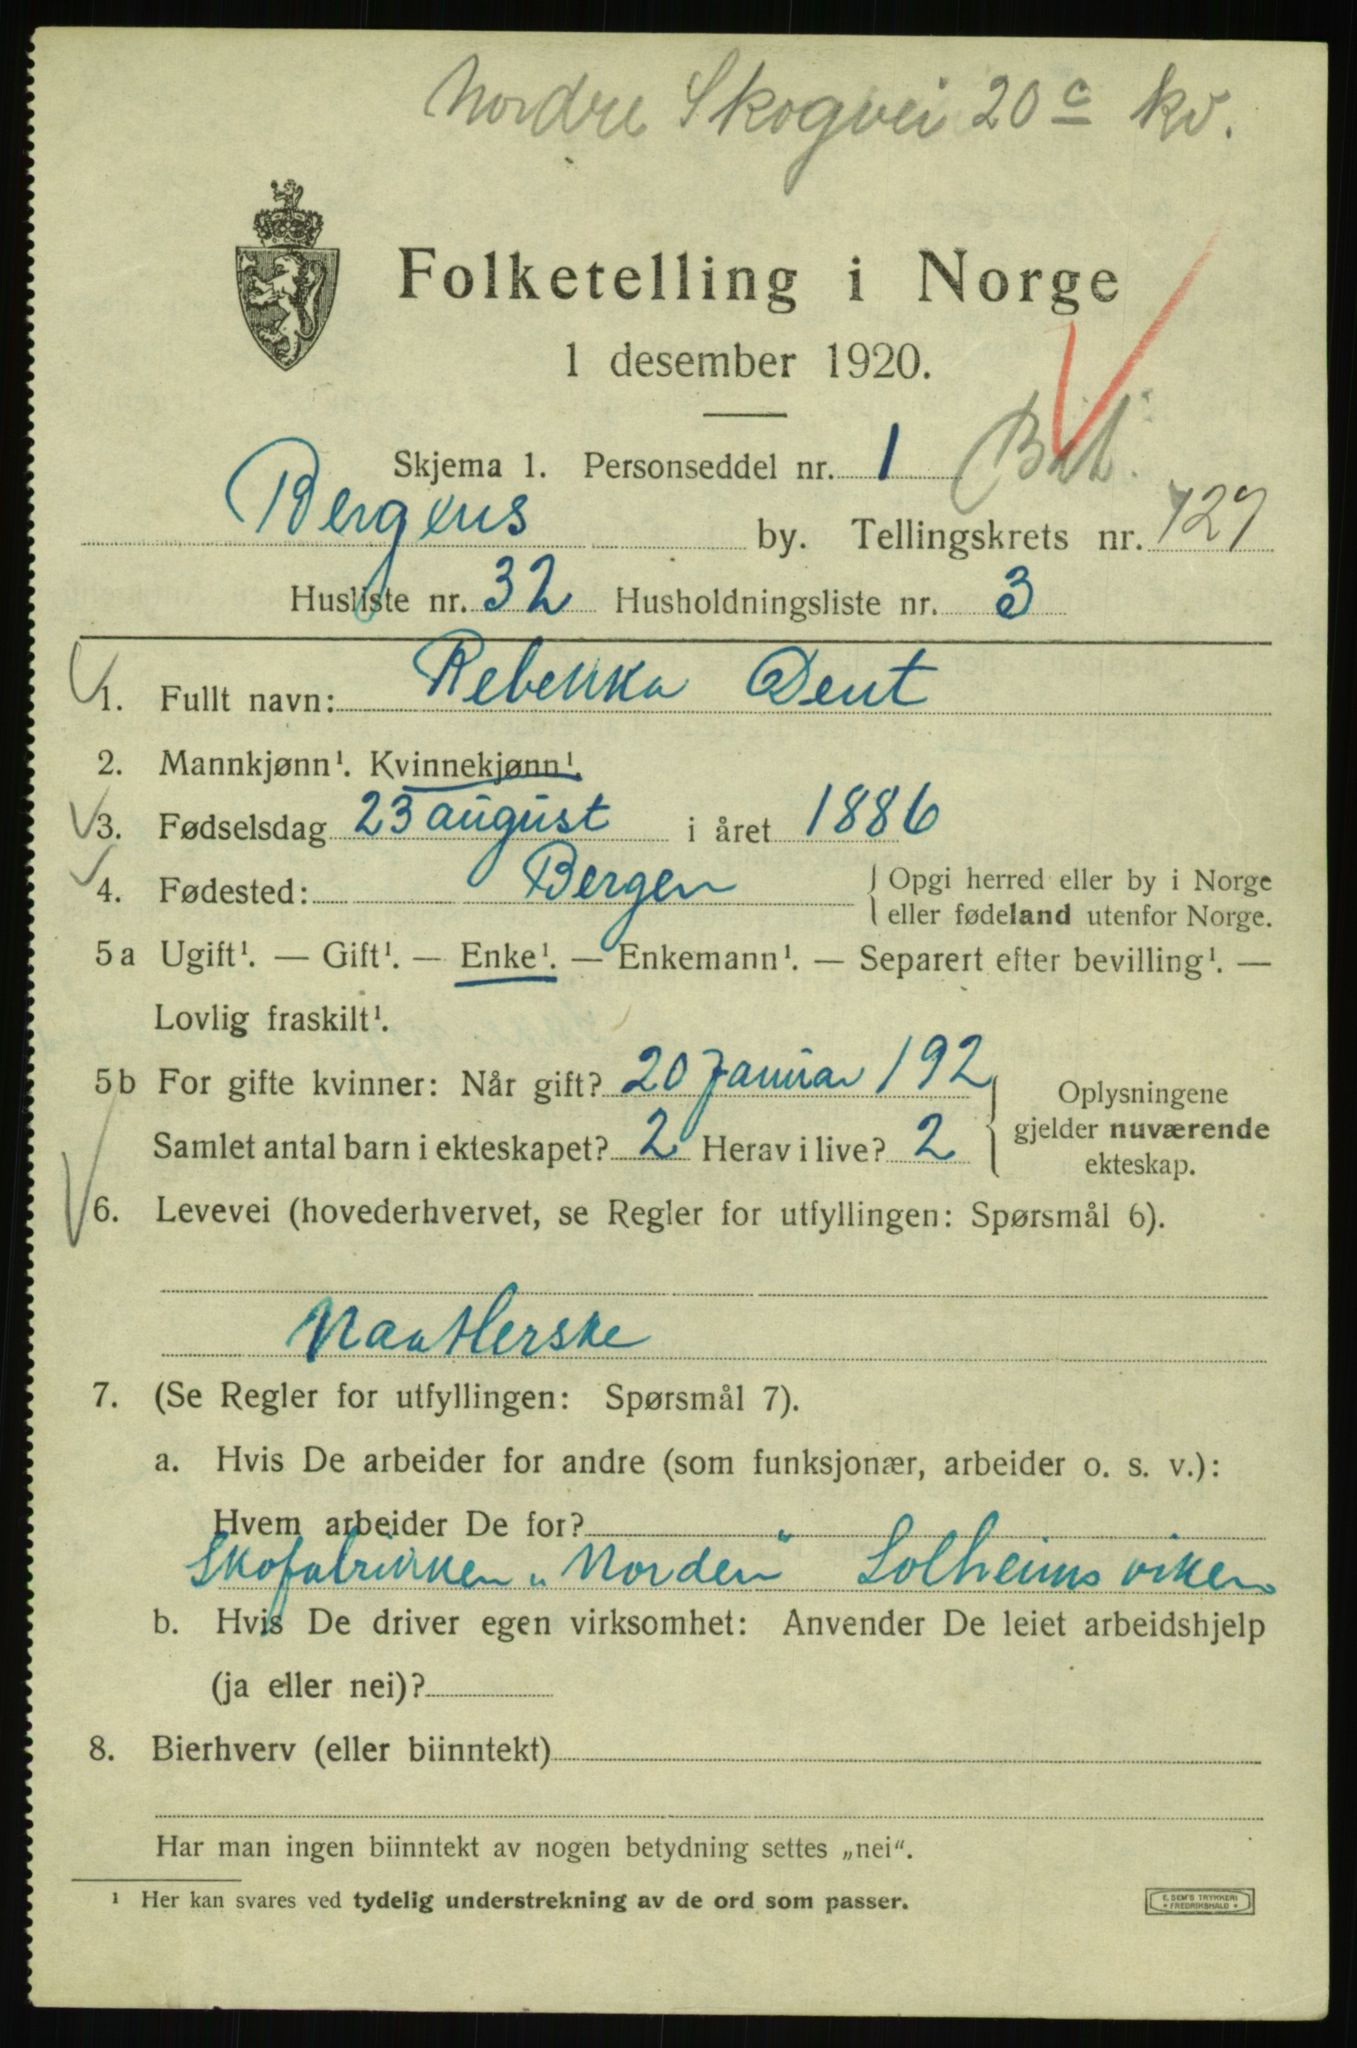 Nordre Skogvei 20 c kv.
Folketelling i Norge
1 desember 1920.
Skjema 1. Personseddel nr. 1
Bergens by. Tellingskrets nr. 127
Husliste nr. 32 Husholdningsliste nr. 3
1. Fullt navn: Rebekka Dent
2. Mannkjønn¹. Kvinnekjønn¹.
3. Fødselsdag 23 august i året 1886
4. Fødested: Bergen { Opgi herred eller by i Norge
eller fødeland utenfor Norge.
5 a Ugift¹. — Gift¹. — Enke¹. — Enkemann¹. — Separert efter bevilling¹. —
Lovlig fraskilt¹.
5 b For gifte kvinner: Når gift? 20 Januar 192
Samlet antal barn i ekteskapet? 2 Herav i live? 2
{ Oplysningene
gjelder nuværende
ekteskap.
6. Levevei (hovederhvervet, se Regler for utfyllingen: Spørsmål 6).
Naatlerske
7. (Se Regler for utfyllingen: Spørsmål 7).
a. Hvis De arbeider for andre (som funksjonær, arbeider o. s. v.):
Hvem arbeider De for?
Skofabrikken „Norden" Solheimsviken
b. Hvis De driver egen virksomhet: Anvender De leiet arbeidshjelp
(ja eller nei)?
8. Bierhverv (eller biinntekt)
Har man ingen biinntekt av nogen betydning settes „nei“.
¹ Her kan svares ved tydelig understrekning av de ord som passer.
E. SEM'S TRYKKERI
* FREDRIKSHALD *